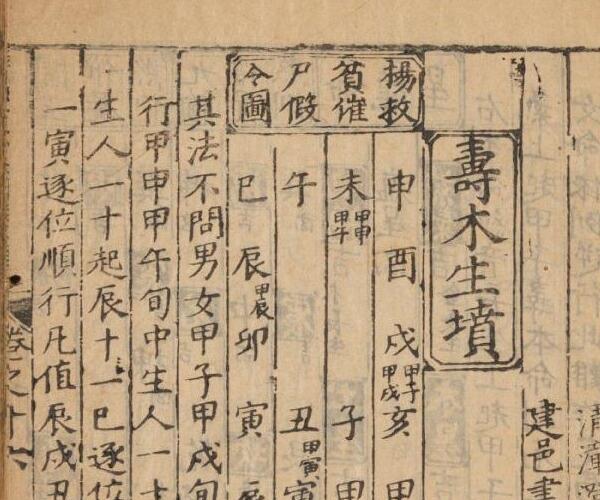 清潭
建邑書
壽木生墳
楊救
貧催
尸假
令圖
申酉戌甲子甲戌亥甲
未甲申甲午子甲
午丑甲寅寅
巳辰甲辰卯寅辰
其法不問男女甲子甲戌旬
行甲申甲午旬中生人一十
生人一十起辰十一巳逐位
一寅逐位順行凡值辰戌丑
卷之十六